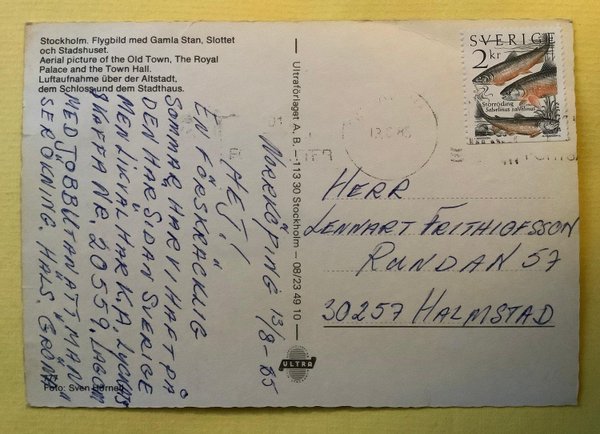 Stockholm. Flygbild med Gamla Stan, Slottet
och Stadshuset.
Aerial picture of the Old Town, The Royal
Palace and the Town Hall.
Luftaufnahme über der Altstadt,
dem Schloss und dem Stadthaus.
NORRKÖPING 13/8-85
HEJ!
EN FÖRSKRÄCKLIG
SOMMAR HAR VI HAFT PÅ
DEN HÄR SIDAN SVERIGE
MEN LIKVÄL HAR K.A. LYCKATS
SKAFFA NR. 20559, LAGOM
MED JOBB UTAN ATT MAN
SER ÖKNING. HÄLS.
Foto: Sven Hörnell
Ultraförlaget A. B. – 113 30 Stockholm – 08/23 49 10
ULTRA
SVERIGE
2 kr
Storröding
Salvelinus salvelinus
HERR
LENNART FRITHIOFSSON
RUNDAN 57
30257 HALMSTAD